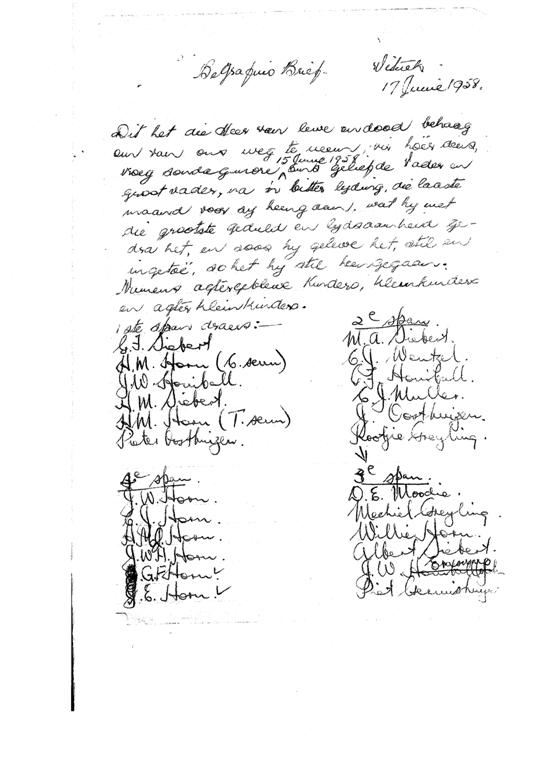 Begrafnis Brief. Vitrek
17 Junie 1958.
Dit het die Heer van lewe en dood behaag
om van ons weg te neem, vir hoër diens,
vroeg sondagmore, 15 Junie 1958 ons geliefde Vader en
grootvader, na 'n bitter lyding, die laaste
maand voor sy heengaan. wat hy met
die grootste geduld en lydsaamheid ge-
dra het, en soos hy gelewe het, stil en
ingetoë, so het hy stil heengegaan.
Numens agtergeblewe Kinders, kleinkinders
en agterkleinkinders.
1ste span draers:—
G. F. Siebert
H. M. Horn (C. seun)
J. W. Honiball.
H. M. Siebert.
H. M. Horn (T. seun)
Pieter Oosthuizen.
2e span.
M. A. Siebert.
C. J. Wentzel.
C. F. Honiball.
C. J. Muller.
J. Oosthuizen.
Kootjie Greyling.
3e span.
D. E. Moodie.
Mechiel Greyling.
Willie Horn.
Albert Siebert.
J. W.
Piet
4e span.
J. W. Horn.
C. J. Horn.
H. M. J. Horn.
J. W. H. Horn.
G. F. Horn.
J. E. Horn.